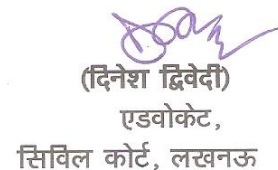 (दिनेश द्विवेदी)
एडवोकेट,
सिविल कोर्ट, लखनऊ